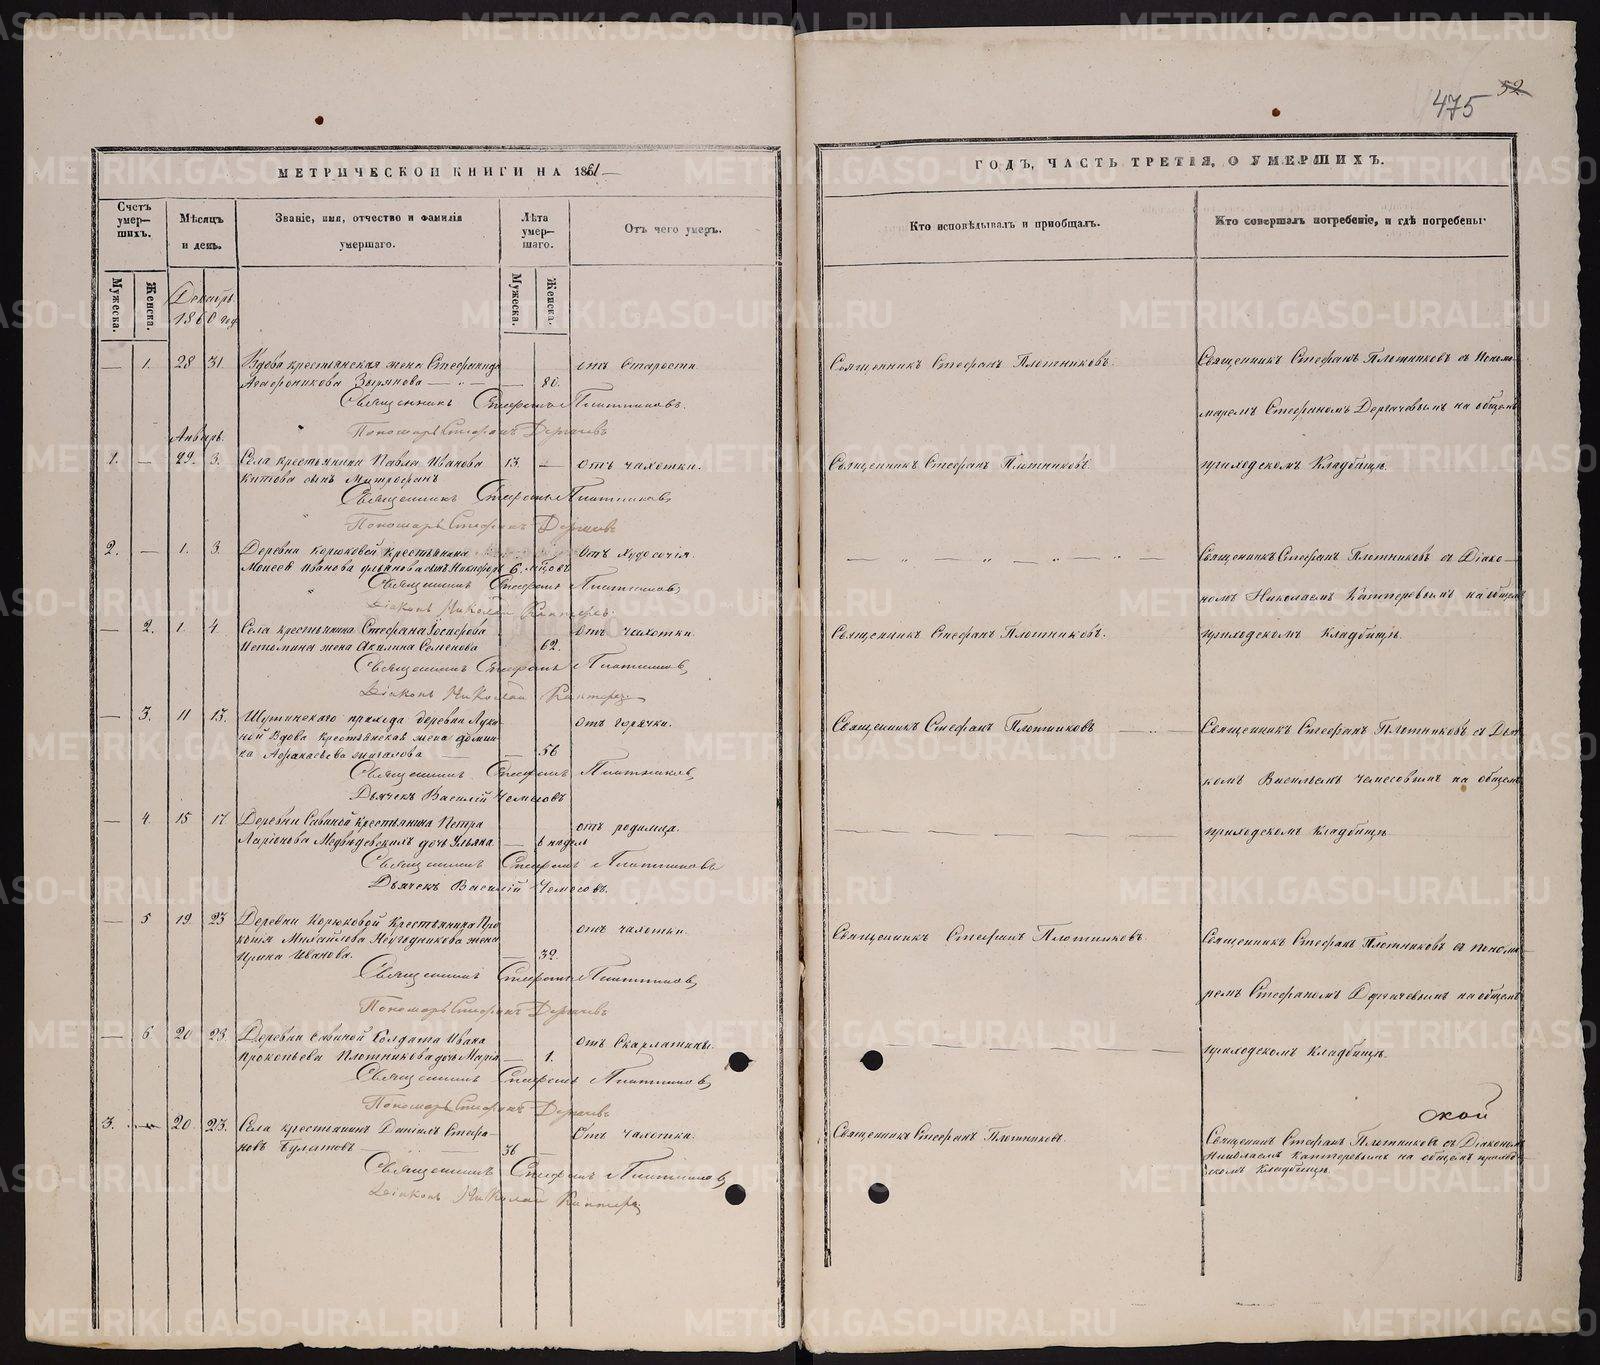 475 52
МЕТРИЧЕСКОЙ КНИГИ НА 1861
ГОДЪ, ЧАСТЬ ТРЕТІЯ, О УМЕРШИХЪ.
Счетъ умер-шихъ.
Мѣсяцъ и день.
Званіе, имя, отчество и фамилія умершаго.
Лѣта умер-шаго.
Отъ чего умеръ.
Кто исповѣдывалъ и пріобщалъ.
Кто совершалъ погребеніе, и гдѣ погребены.
Мужеска. Женска.
Мужеска. Женска.
1860 год
— 1. 28 31 Вдова крестьянская жена Стефанида отъ Старости.
Агафоникова Зырянова — 80.
Священникъ Стефанъ Плотниковъ.
Пономарь Стефанъ Дергачевъ
Священникъ Стефанъ Плотниковъ.
Священникъ Стефанъ Плотниковъ съ Поно-
маремъ Стефаномъ Дергачевымъ на общемъ
приходскомъ Кладбищѣ.
Январь.
1. — 29. 3. Села крестьянина Павла Иванова 13. — отъ чахотки.
Китова сынъ Митрофанъ
Священникъ Стефанъ Плотниковъ
Пономарь Стефанъ Дергачевъ
Священникъ Стефанъ Плотниковъ.
2. — 1. 3. Деревни Корюковой крестьянина Отъ Худосочія.
Моисея Иванова сынъ Никифоръ 6.
Священникъ Стефанъ Плотниковъ
Діаконъ Николай
Священникъ Стефанъ Плотниковъ съ Діако-
номъ Николаемъ Каптеревымъ на общемъ
приходскомъ Кладбищѣ.
— 2. 1. 4. Села крестьянина Стефана отъ чахотки.
Истомина жена Акилина Семенова 62.
Священникъ Стефанъ Плотниковъ
Діаконъ Николай
Священникъ Стефанъ Плотниковъ.
— 3. 11 13. Шутинскаго прихода деревни отъ горячки.
ной Вдова крестьянская жена Домни-
ка — 56
Священникъ Стефанъ Плотниковъ
Дьячекъ Василій Чемесовъ
Священникъ Стефанъ Плотниковъ
Священникъ Стефанъ Плотниковъ съ Дья-
комъ Васильемъ Чемесовымъ на общемъ
приходскомъ Кладбищѣ
— 4. 15 17. Деревни Савиной крестьянина Петра отъ родимца.
Ларіонова Медвѣдевскихъ дочь Ульяна — 6 недѣль
Священникъ Стефанъ Плотниковъ
Дьячекъ Василій Чемесовъ.
— 5 19. 23 Деревни Корюковой Крестьянина Про- отъ чахотки.
копія Михайлева Неугодникова жена
Ирина Иванова. — 32.
Священникъ Стефанъ Плотниковъ
Пономарь Стефанъ Дергачевъ
Священникъ Стефанъ Плотниковъ.
Священникъ Стефанъ Плотниковъ съ Понома-
ремъ Стефаномъ Дергачевымъ на общемъ
приходскомъ Кладбищѣ.
— 6 20. 23. Деревни Савиной Солдата Ивана отъ Скарлатины.
Прокопьева Плотникова дочь Марія — 1.
Священникъ Стефанъ Плотниковъ
Пономарь Стефанъ Дергачевъ
3. — 20. 23. Села крестьянинъ Даніилъ Стефа- Отъ чахотки.
новъ Булатовъ 36
Священникъ Стефанъ Плотниковъ
Діаконъ Николай
Священникъ Стефанъ Плотниковъ.
Священникъ Стефанъ Плотниковъ съ Діакономъ
Николаемъ Каптеревымъ на общемъ приход-
скомъ Кладбищѣ.
METRIKI.GASO-URAL.RU